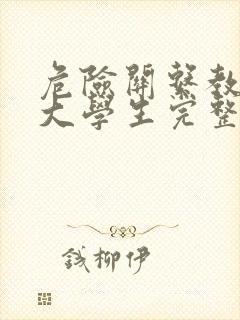 危險關繫教
大學生完整
錢柳伊